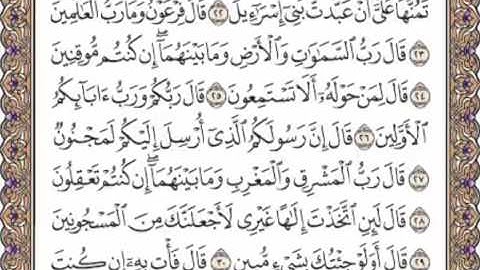 تَمُنُّهَا عَلَىَّ أَنْ عَبَّدتَّ بَنِىٓ إِسْرَٰٓءِيلَ ٢٢ قَالَ فِرْعَوْنُ وَمَا رَبُّ الْعَٰلَمِينَ
٢٣ قَالَ رَبُّ السَّمَٰوَٰتِ وَالْأَرْضِ وَمَا بَيْنَهُمَآ ۖ إِن كُنتُم مُّوقِنِينَ
٢٤ قَالَ لِمَنْ حَوْلَهُۥٓ أَلَا تَسْتَمِعُونَ ٢٥ قَالَ رَبُّكُمْ وَرَبُّ ءَابَآئِكُمُ
الْأَوَّلِينَ ٢٦ قَالَ إِنَّ رَسُولَكُمُ الَّذِىٓ أُرْسِلَ إِلَيْكُمْ لَمَجْنُونٌ
٢٧ قَالَ رَبُّ الْمَشْرِقِ وَالْمَغْرِبِ وَمَا بَيْنَهُمَآ ۖ إِن كُنتُمْ تَعْقِلُونَ
٢٨ قَالَ لَئِنِ اتَّخَذْتَ إِلَٰهًا غَيْرِى لَأَجْعَلَنَّكَ مِنَ الْمَسْجُونِينَ
٢٩ قَالَ أَوَلَوْ جِئْتُكَ بِشَىْءٍ مُّبِينٍ ٣٠ قَالَ فَأْتِ بِهِۦٓ إِن كُنتَ